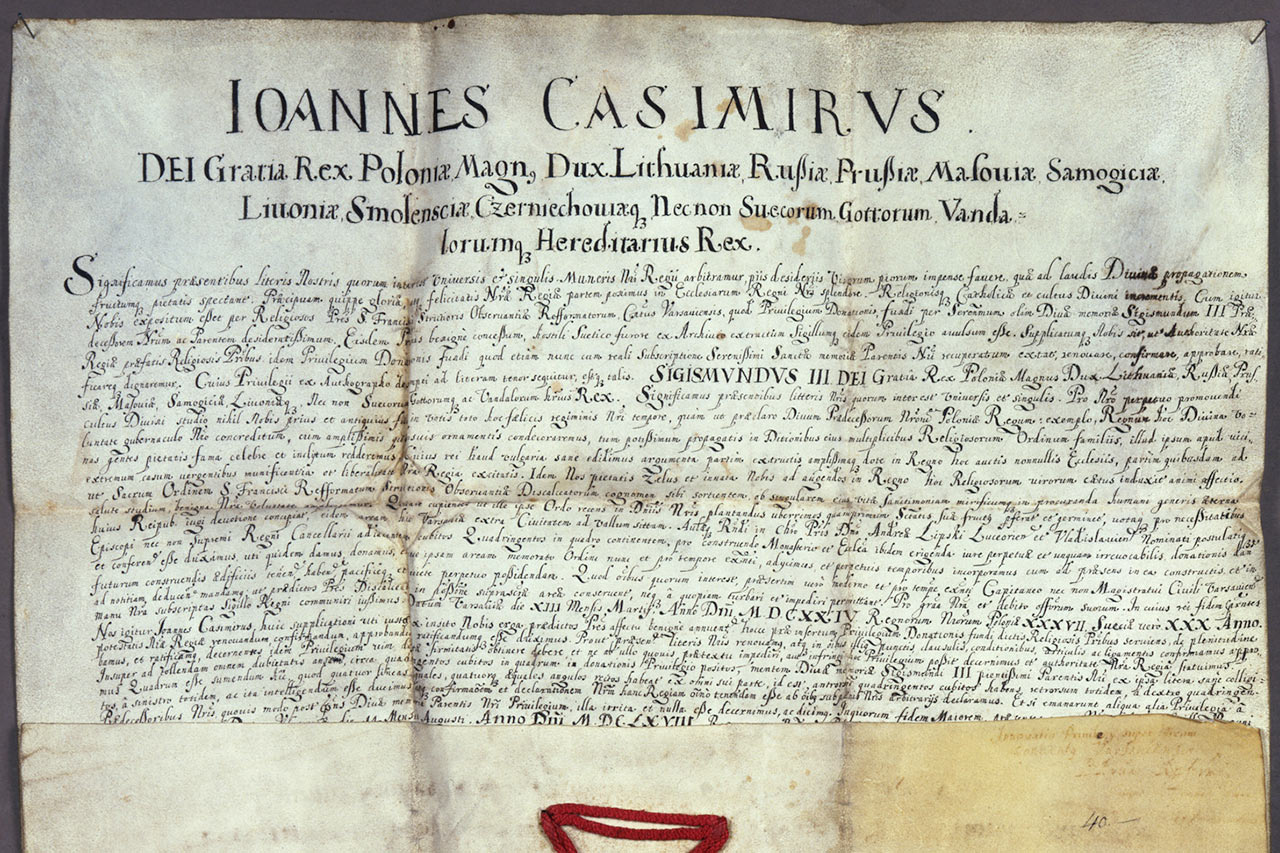 IOANNES CASIMIRVS.
DEI Gratia Rex Poloniæ, Magn9 Dux Lithuaniæ, Rußiæ, Prußiæ, Masouiæ, Samogiciæ,
Liuoniæ, Smolensciæ, Czerniechouiæq3 Necnon Suecorum, Gottorum, Vanda=
lorumq3 Hereditarius Rex.
Significamus præsentibus literis Nostris quorum interest Vniversis et singulis. Muneris Nri Regii arbitramur, piis desideriis Virorum piorum impense favere, quæ ad laudis Divinæ propagationem
fructumq3 pietatis spectant. Præcipuam quippe gloriæ et felicitatis Nræ Regiæ partem posimus in Ecclesiarum Regni Nri splendore, Religionisq3 Catholicæ et cultus Divini incrementis. Cum igitur
Nobis expositum esset per Religiosos Pres S. Francisci Strictioris Observantiæ Refformatorum Cætus Varsaviensis, quod Privilegium Donationis, fundi per Serenmum olim Divæ memoriæ Sigismundum III Præ-
decessorem Nrum ac Parentem desideratissimum, Eisdem benigne concessum, hostili Suetico furore ex Archivo extractum Sigillumq3 eidem Privilegio avulsum esse. Supplicatumq3 Nobis sit, ut Authoritate Nra
Regia præfatis Religiosis Pribus idem Privilegium Donationis fundi quod etiam nunc cum reali Subscriptione Serenissimi Sanctæ memoriæ Parentis Nri recuperatum extat, renovare, confirmare, approbare, rati
ficareq3 dignaremur. Cuius Privilegii ex Authographo ad literam tenor sequitur, estq3 talis. SIGISMVNDVS III DEI Gratia Rex Poloniæ Magnus Dux Lithuaniæ, Rußiæ Prus-
siæ, Masouiæ, Samogiciæ, Liuoniæq3 Nec non Suecorum Gottorum ac Vandalorum hrius Rex. Significamus præsentibus literis Nris quorum interest Vniversis et singulis. Pro Nro perpetuo promovendi
cultus Divini studio nihil Nobis prius et antiquius in votis toto hoc felicis regiminis Nri tempore, quam ut præclaro Divum Prædecessorum Nrorum Poloniæ Regum exemplo, Regnum hoc Divina Vo-
luntate gubernaculo Nro concreditum, cum amplissimis ornamentis condecoraremus, tum potissimum propagatis in Ditionibus eius multiplicibus Religiosorum Ordinum familiis, illud ipsum apud vici-
nas gentes pietatis fama celebre et inclytum redderemus. Cuius rei haud vulgaria sane edidimus argumenta partim extructis amplissimaq3 dote in Regno hoc auctis nonnullis Ecclesiis, partim quibusdam ad
extremum casum vergentibus munificentia et liberalitate Nra Regia excitatis. Idem Nos pietatis Zelus et innata Nobis ad augendos in Regno hoc Religiosorum virorum cætus induxit animi affectio,
ut Sacrum Ordinem S. Francisci Refformatum Strictioris Observantiæ Discalceatorum cognomen sibi sortientem, ob singularem eius vitæ sanctimoniam mirificumq3 in procuranda humani generis æterna
salute studium, benigna Nra voluntate cupientes ut ille ipse Ordo recens in Ditiis Nris plantandus uberrimos quamprimum Sctatis suæ fructus efferat et germinet, votaq3 pro necessitatibus
huius Reipub. iugi devotione concipiat, eidem aream hic Varsaviæ extra Civitatem ad Vallum sitam. Andreæ Lipski Luceorien et Vladislavien Nominati postulatiq3
Episcopi nec non Supremi Regni Cancellarii adiacentem cubitos Quadringentos in quadro continentem, pro construendo Monasterio et Ecclia ibidem erigenda iure perpetuo et unquam irrevocabilis donationis dan
et conferen esse duximus, uti quidem damus, donamus, ipsam aream memorato Ordini nunc et pro tempore exnti, adycimus, et perpetuis temporibus incorporamus cum ad præsens in ea constructis, et in
futurum construendis ædificiis tenen haben pacifice et quiete perpetuo possidendam. Quod oibus quorum interest, præsertim vero moderno et pro tempe exnti Capitaneo nec non Magistratui Civili Varsavien
ad notitiam deducen mandamq3 ut prædictos Pres Discalceatos in possne supradictæ areæ conservent, neq3 à quopiam turbari et impediri permittant. Pro gra Nra et debito officiorum Suorum. In cuius rei fidem Pntes
manu Nra subscriptas Sigillo Regni communiri iussimus. Datum Varsaviæ die XIII Mensis Martii Anno Dni M.DCXXIV Regnorum Nrorum Poloniæ XXXVII, Sueciæ vero XXX Anno.
Nos igitur Ioannes Casimirus, huic supplicationi uti iustæ ex insito Nobis erga prædictos Pres affectu benigne annuentes hoice præinsertum Privilegium Donationis fundi dictis Religiosis Pribus serviens, de plenitudine
potestatis Nræ Regiæ renovandum confirmandum, approbandum ratificandumq3 esse duximus. Prout præsentibus literis Nris renovamq3 atq3 in oibus eius punctis clausulis, conditionibus, articulis ac ligamentis confirmamus appro-
bamus, et ratificamq3, decernentes idem Privilegium vim firmitatis obtinere debere, et ne ab ullo quovis prætextu impediri, aut infringi Privilegium possit decernimus et authoritate Nra Regia statuimus.
Insuper ad tollendam omnem dubietatis ansam, circa quadringentos cubitos in quadrum in donationis Privilegio positos, mentem Divæ memoriæ Sigismundi III pientissimi Parentis Nri ex ipsa litera sane colligi-
mus Quadrum esse sumendum hic, quod quatuor lineas æquales, quatuorq3 æquales angulos rectos habeat ex omni sui parte, id est antrorsum quadringentos cubitos habens retrorsum totidem, à dextro quadringen-
tos, à sinistro totidem, ac ita intelligendum esse ducimus confirmaoem et declarationem Nram hanc Regiam oino tenendam esse ab oibq3 subditis Nris arbitrariis declaramus. Et si emanarunt aliqua alia Privilegia à
Prædecessoribus Nris quovis modo post Divæ memoriæ Parentis Nri Privilegium, illa irrita et nulla esse decernimus, ac dicimq3. Inquorum fidem Maiorem
Augusti Anno Dni M.DCLXVIII
40.